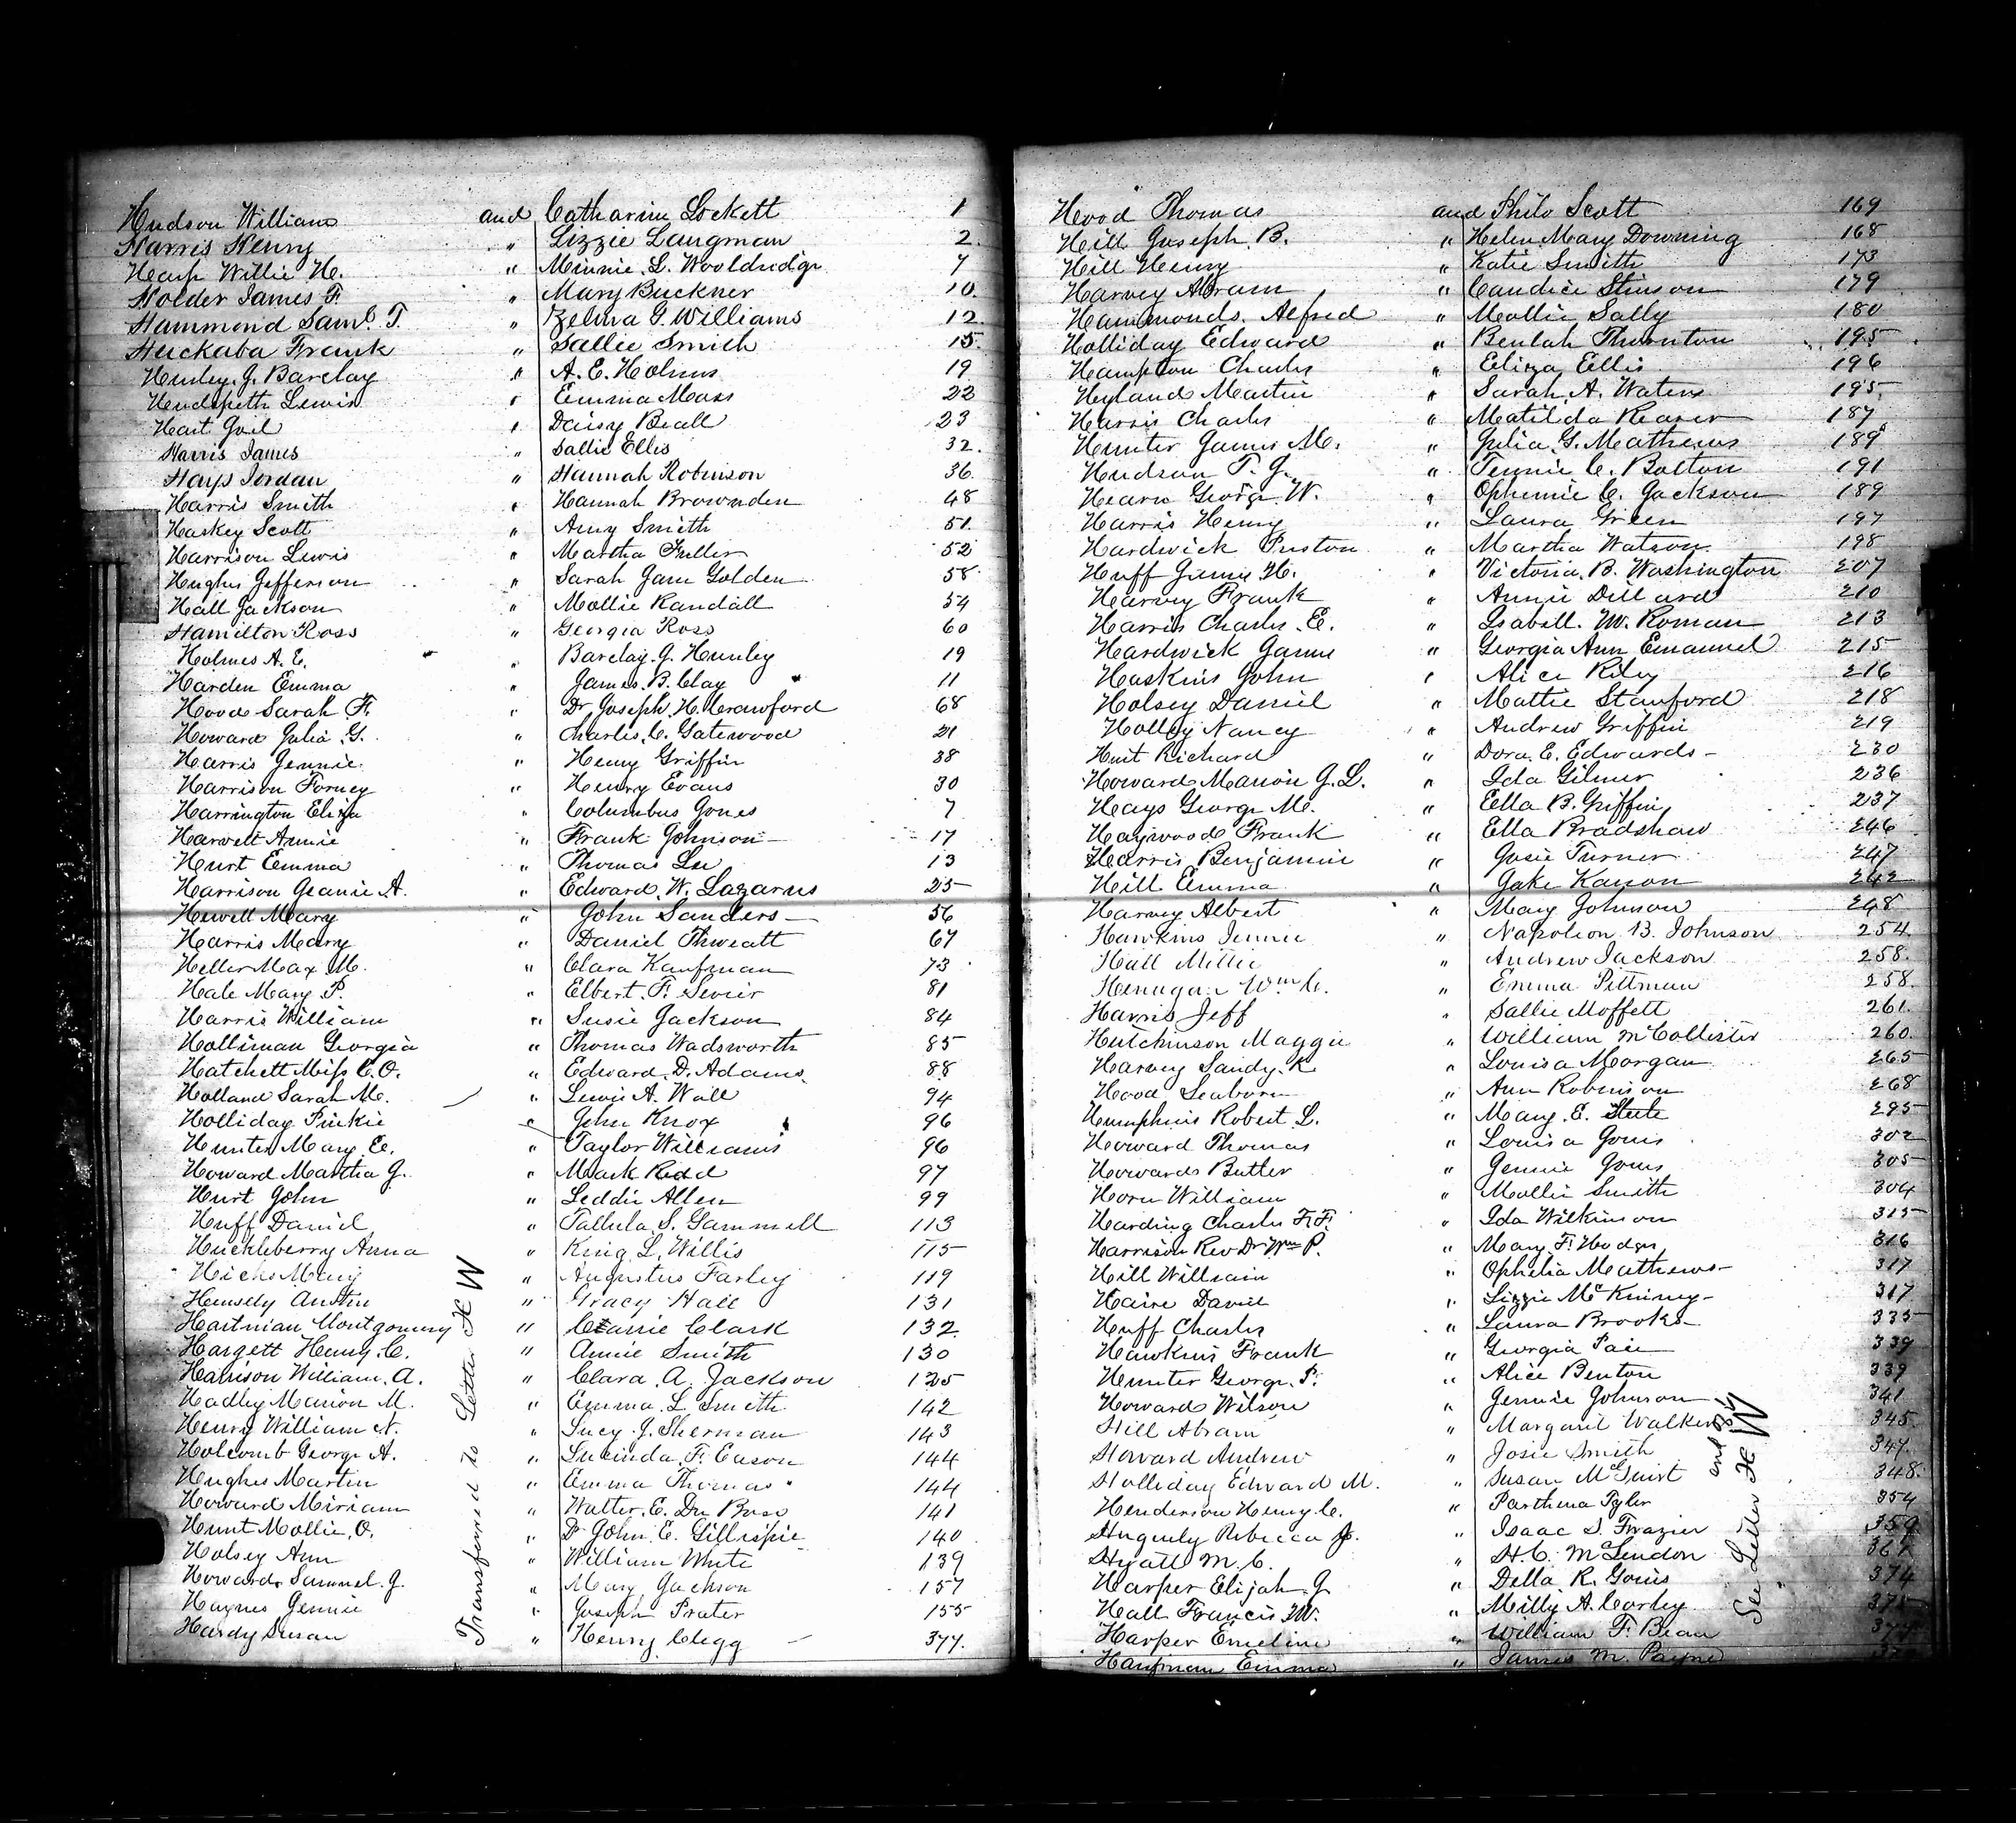 Hudson William and Catharine Lockett 1
Harris Henry " Lizzie Langman 2.
Harp Willie H. " Minnie L. Wooldridge 7
Holder James F. " Mary Buckner 10.
Hammond Saml. T. " Zelma G. Williams 12.
Huckaba Frank " Sallie Smith 15.
Hunley J. Barclay " A. E. Holmes 19
Hudspeth Lewis " Emma Moss 22
Hart Joel " Daisy Beall 23
Harris James " Sallie Ellis 32.
Hays Jordan " Hannah Robinson 36.
Harris Smith " Hannah Brownden 48
Haskey Scott " Amy Smith 51.
Harrison Lewis " Martha Fuller 52
Hughes Jefferson " Sarah Jane Golden 58
Hall Jackson " Mollie Randall 54
Hamilton Ross " Georgia Ross 60
Holmes A. E. " Barclay J. Hunley 19
Harden Emma " James B. Clay 11
Hood Sarah F. " Dr Joseph H. Crawford 68
Howard Julia G. " Charles C. Gatewood 21
Harris Jennie " Henry Griffin 38
Harrison Forney " Henry Evans 30
Harrington Eliza " Columbus Jones 7
Harwell Annie " Frank Johnson 17
Hurt Emma " Thomas Lee 13
Harrison Jeanie A. " Edward W. Lazarus 25
Hewell Mary " John Sanders 56
Harris Mary " Daniel Thweatt 67
Heller Max M. " Clara Kaufman 73
Hale Mary P. " Elbert F. Sevier 81
Harris William " Susie Jackson 84
Holliman Georgia " Thomas Wadsworth 85
Hatchett Miss C. O. " Edward D. Adams 88
Holland Sarah M. " Lewis A. Wall 94
Holliday Pinkie " John Knox 96
Hunter Mary E. " Taylor Williams 96
Howard Martha J. " Mark Redd 97
Hurt John " Leddie Allen 99
Huff Daniel " Talhula S. Gammell 113
Huckleberry Anna " King L. Willis 115
Hicks Mary " Augustus Farley 119
Hemsley Austin " Gracy Hall 131
Hartman Montgomery " Carrie Clark 132
Hargett Henry C. " Annie Smith 130
Harrison William A. " Clara A. Jackson 125
Hadley Marion M. " Emma L. Smith 142
Henry William N. " Lucy J. Sherman 143
Holcomb George A. " Lucinda F. Eason 144
Hughes Martin " Emma Thomas 144
Howard Miriam " Walter E. Du Bose 141
Hunt Mollie O. " Dr John E. Gillispie 140
Holsey Ann " William White 139
Howard Samuel J. " Mary Jackson 157
Haynes Jennie " Joseph Prater 155
Hardy Susan " Henry Clegg 377.
Transferred to Letter H W
Hood Thomas and Philo Scott 169
Hill Joseph B. " Helen Mary Downing 168
Hill Henry " Katie Smith 173
Harvey Abram " Candice Stinson 179
Hammonds Alfred " Mollie Sally 180
Holliday Edward " Beulah Thornton 195
Hampton Charles " Eliza Ellis 196
Hyland Martin " Sarah A. Waters 195
Harris Charles " Matilda Reaser 187
Hunter James M. " Julia G. Mathews 189
Hudson T. J. " Tennie C. Bolton 191
Hearn George W. " Ophemie C. Jackson 189
Harris Henry " Laura Green 197
Hardwick Preston " Martha Watson 198
Huff Jimmie H. " Victoria B. Washington 207
Harvey Frank " Annie Dillard 210
Harris Charles E. " Isabell W. Roman 213
Hardwick Jamie " Georgia Ann Emanuel 215
Haskins John " Alice Riley 216
Holsey Daniel " Mattie Stanford 218
Holley Nancy " Andrew Griffin 219
Hurt Richard " Dora E. Edwards 230
Howard Marion J. L. " Ida Gilmer 236
Hays George M. " Ella B. Griffin 237
Haywood Frank " Ella Bradshaw 246
Harris Benjamin " Josie Turner 247
Hill Emma " Jake Kanon 242
Harvey Albert " Mary Johnson 248
Hawkins Jennie " Napoleon B. Johnson 254
Hall Millie " Andrew Jackson 258.
Henagan Wm. C. " Emma Pittman 258.
Harris Jeff " Sallie Moffett 261.
Hutchinson Maggie " William McCollister 260.
Harvey Sandy K " Louisa Morgan 265
Hood Seaborn " Ann Robinson 268
Humphries Robert L. " Mary E. Steele 295
Howard Thomas " Louisa Jones 302
Howard Butler " Jennie Jones 305
Horn William " Mollie Smith 304
Harding Charles F. F. " Ida Wilkinson 315
Harrison Rev Dr Wm P. " Mary F. Hodges 316
Hill William " Ophelia Mathews 317
Haire David " Lizzie McKinney 317
Huff Charles " Laura Brooks 335
Hawkins Frank " Georgia Pace 339
Hunter George P. " Alice Benton 339
Howard Wilson " Jennie Johnson 341
Hill Abram " Margaret Walker 345.
Howard Andrew " Josie Smith 347.
Holliday Edward M. " Susan McGuirt 348.
Henderson Henry C. " Parthena Tyler 354
Huguely Rebecca J. " Isaac S. Frazier 359.
Hyatt M. C. " H. C. McLendon
Harper Elijah J " Della R. Goins 374
Hall Francis W. " Milly A. Corley 375
Harper Emeline " William F. Bean
Haufman Emma " James M. Payne
See Letter H W